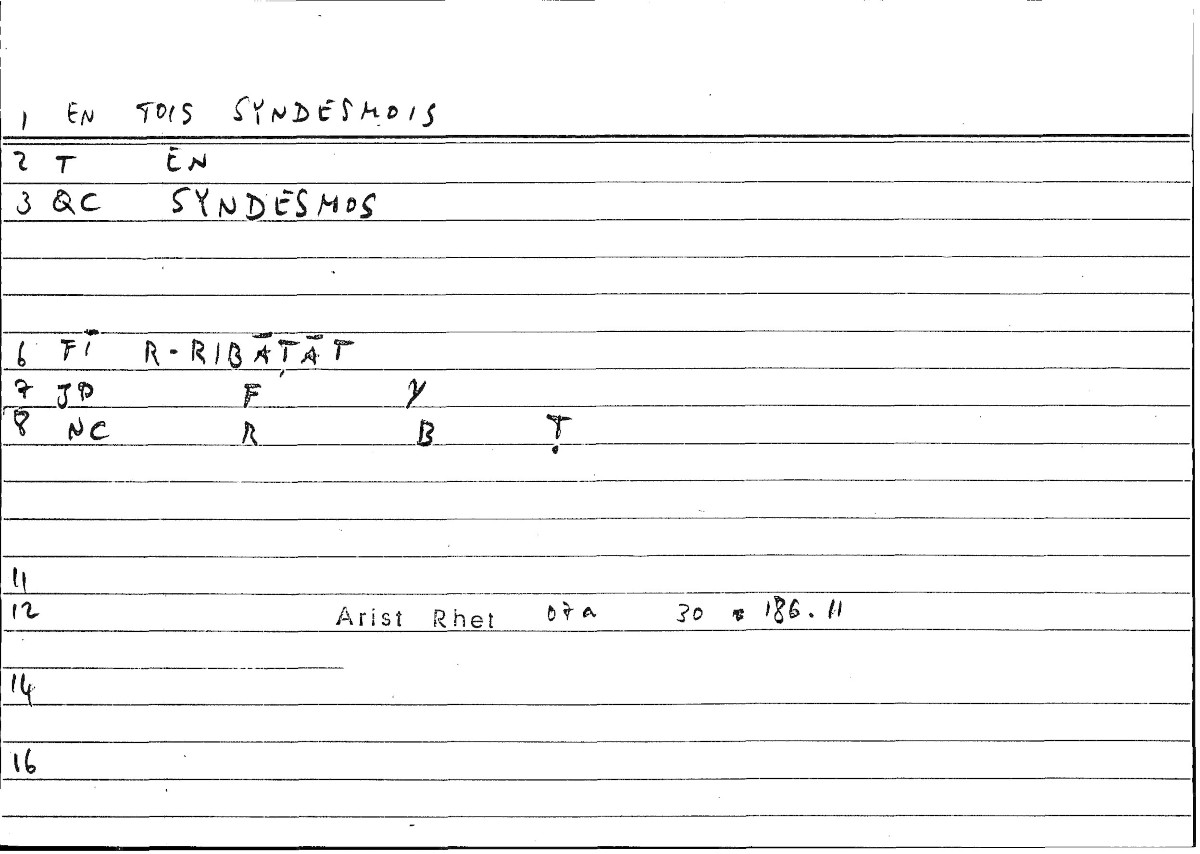 1 EN TOIS SYNDESMOIS
2 T EN
3 QC SYNDESMOS
6 FĪ R-RIBĀṬĀT
7 JP F Y
8 NC R B Ṭ
11
12 Arist Rhet 07a 30 = 186.11
14
16